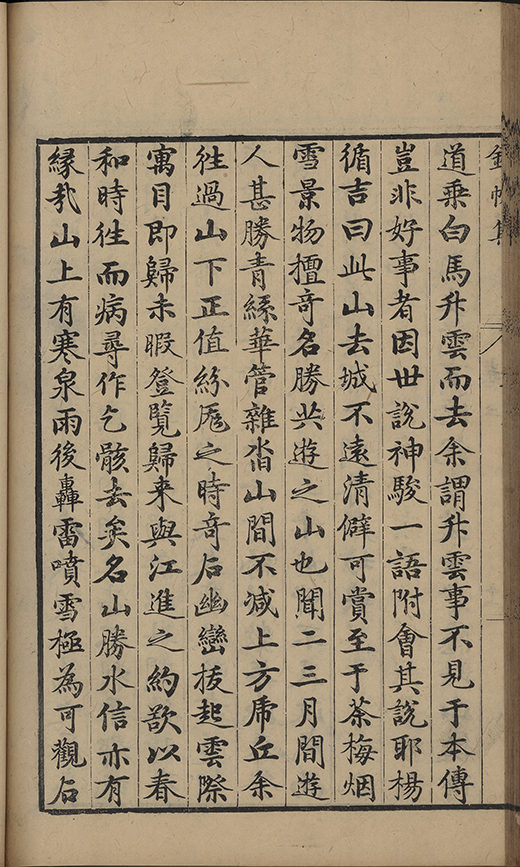 錦帆集
道乘白馬升雲而去余謂升雲事不見于本傳
豈非好事者因世說神駿一語附會其說耶楊
循吉曰此山去城不遠清僻可賞至于茶梅烟
雪景物擅奇名勝共遊之山也聞二三月間遊
人甚勝青絲華管雜沓山間不减上方虎丘余
徃過山下正值紛厖之時奇石幽巒拔起雲際
寓目即歸未暇登覽歸来與江進之約欲以春
和時徃而病尋作乞骸去矣名山勝水信亦有
縁㢤山上有寒泉雨後轟雷噴雪極為可觀石